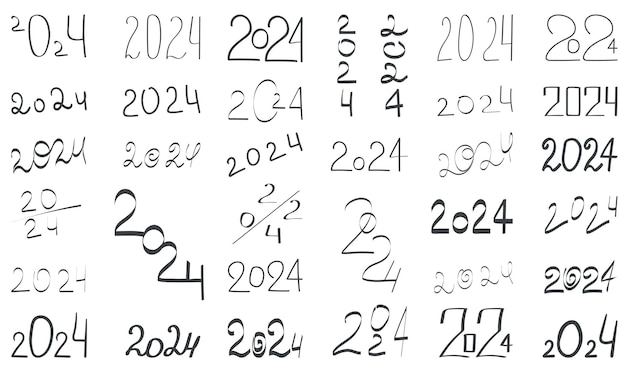 2024 2024 2024 2024 2024 2024 2024
2024 2024 2024 2024 2024
2024 2024 2024 2024 2024 2024
20
24
2024
20/24
2024
2024 2024
2024 2024 2024 2024
2024 2024 2024 2024 2024 2024